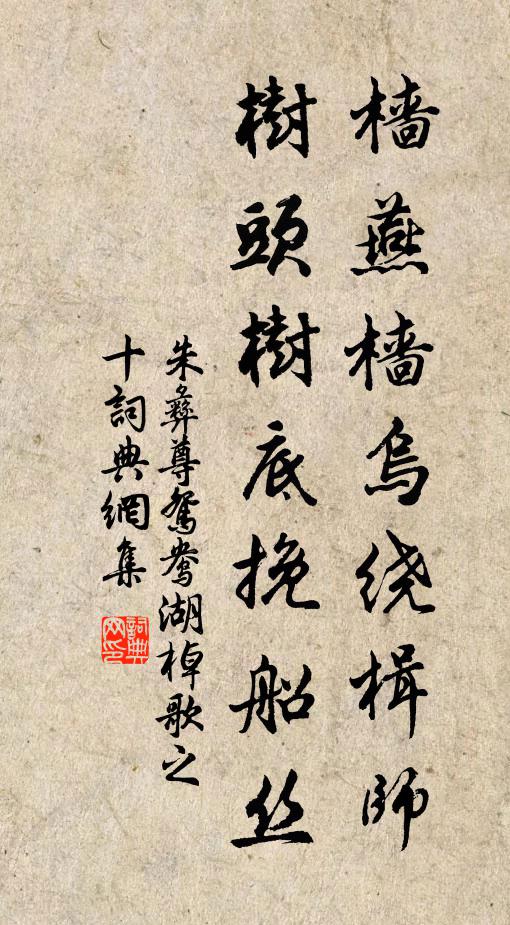 檣燕檣烏绕楫師
樹頭樹底挽船丝
朱彝尊鴛鴦湖棹歌之
十詞典網集
詞典
网印